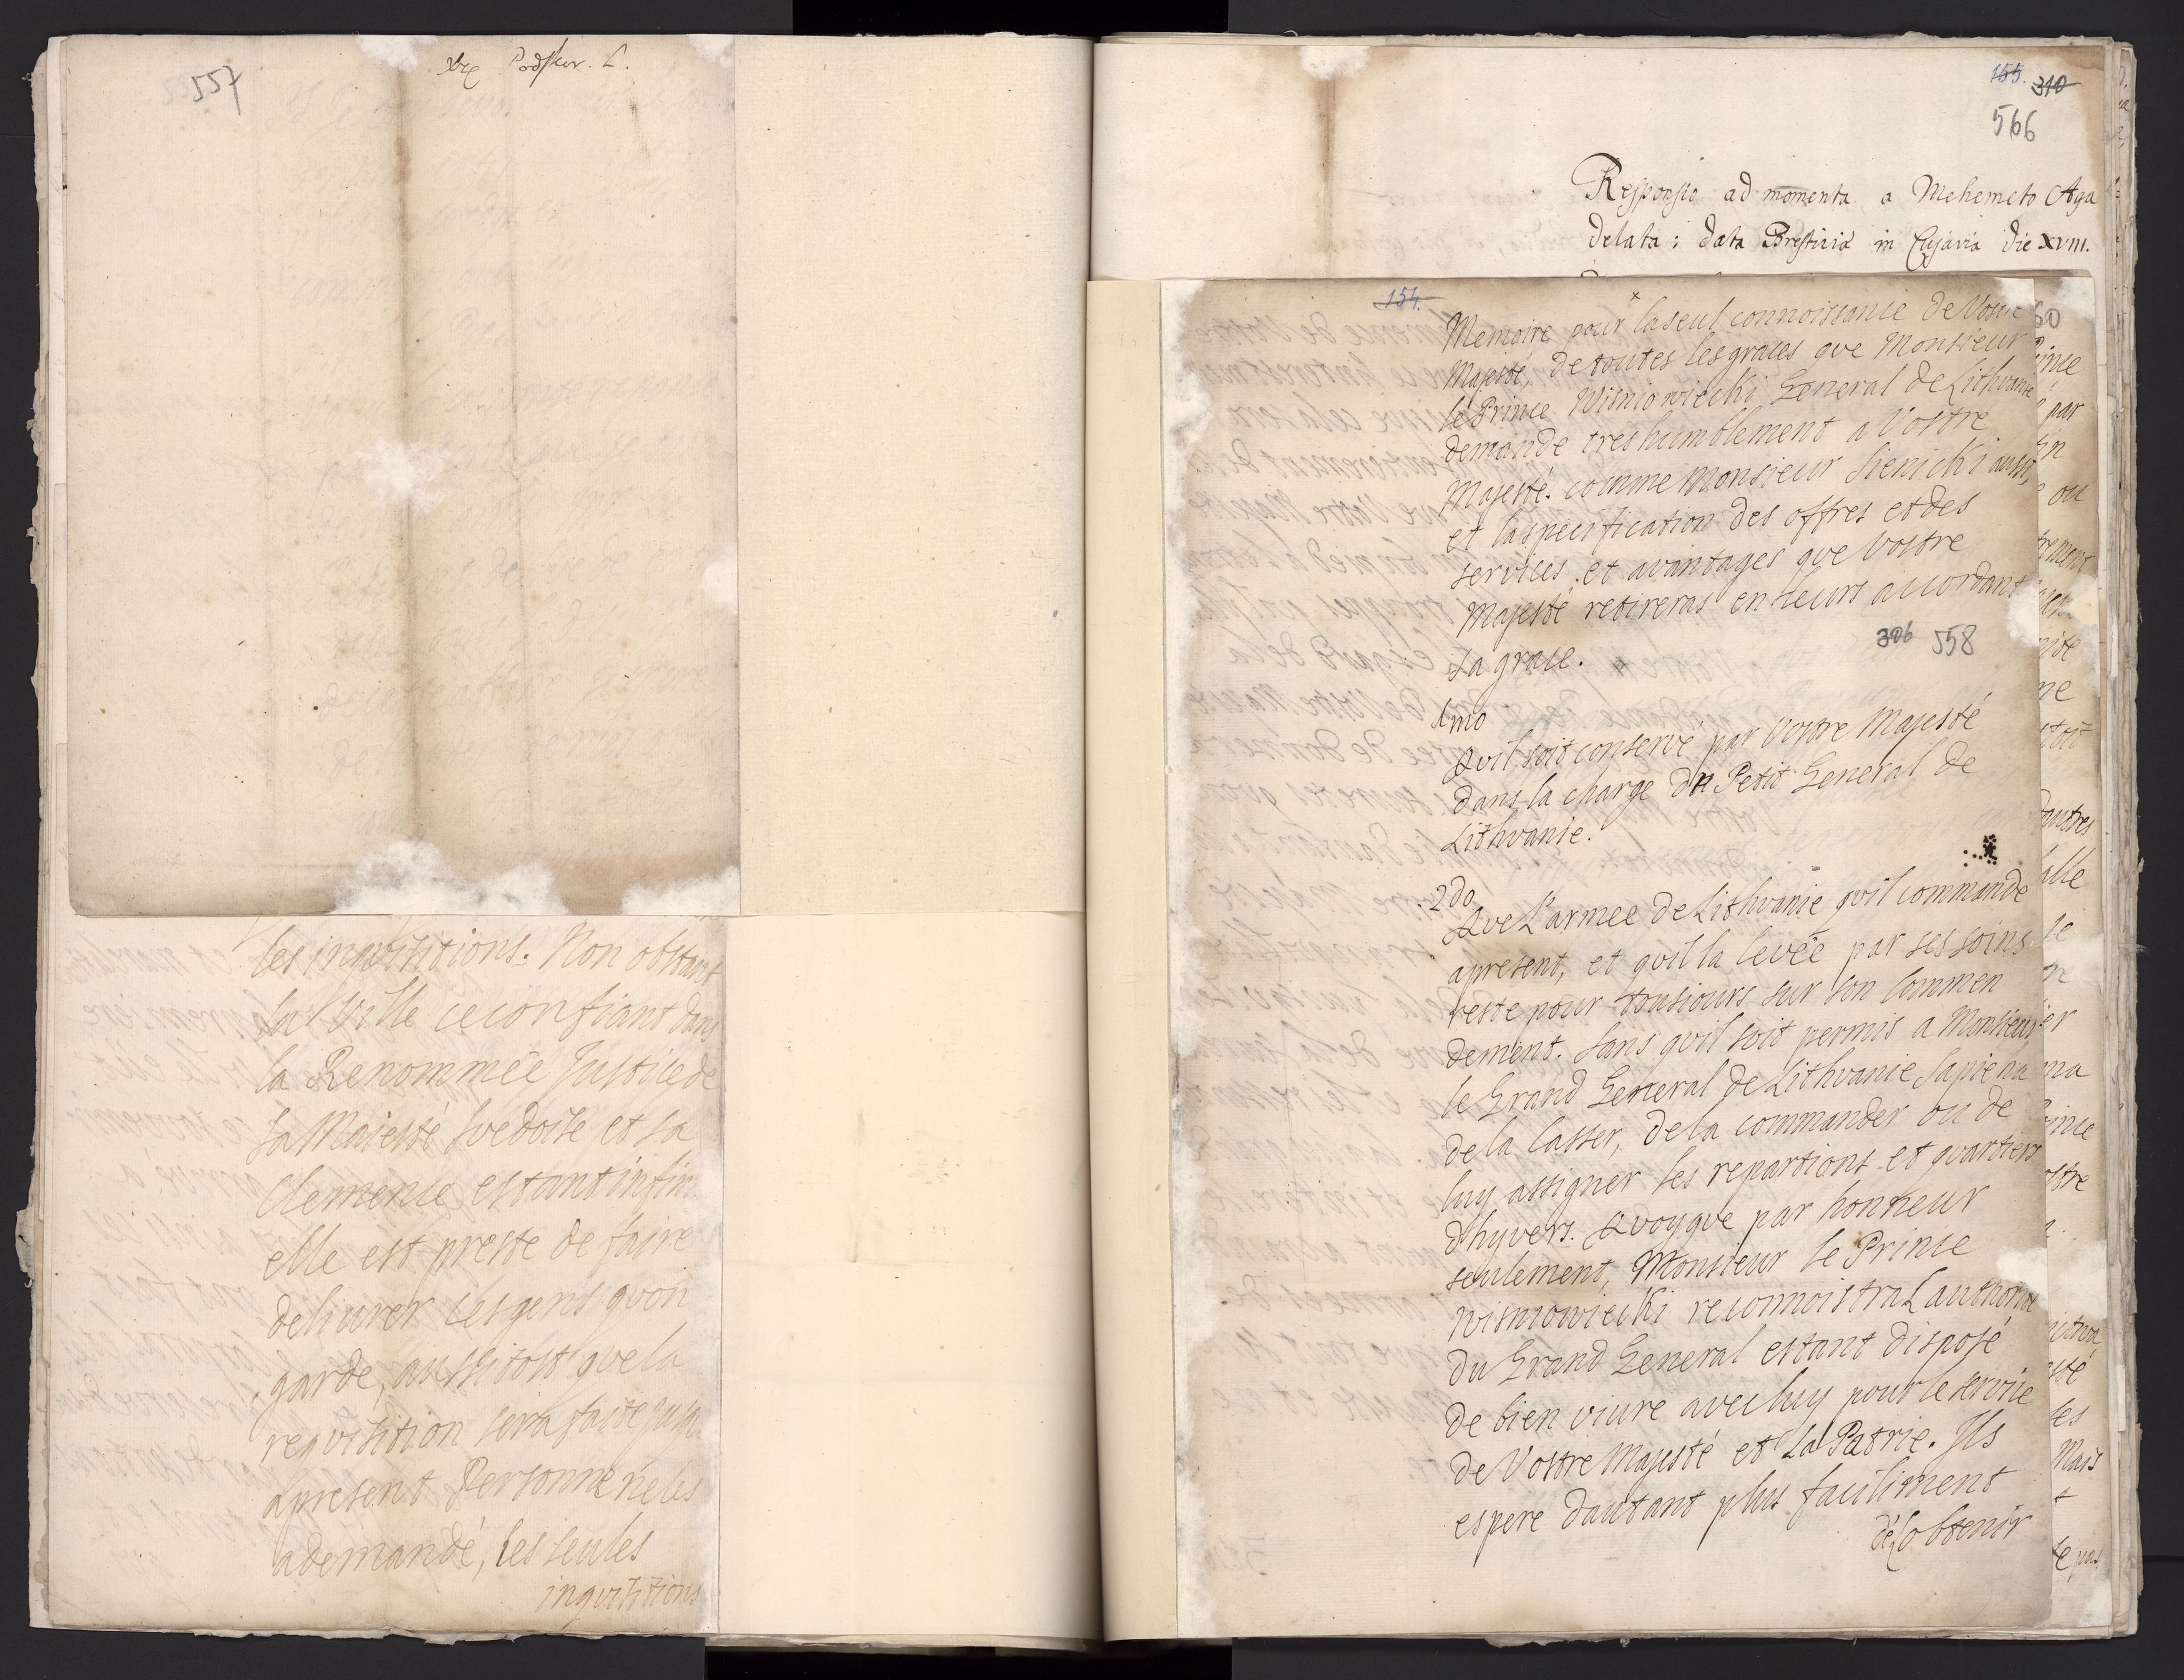 557
Podskar. L.
les inqvisitions. Non obstant
la Ville ce confiant dans
la Renommée Justice de
sa Maiesté svedoise et sa
clemence estant infin
elle est preste de faire
deliurer les gens qvon
garde, aussitost qve la
reqvisition sera faite
apresent Personne ne les
a demandé, les seules
inqvisitions
155. 310
566
Responsio ad momenta a Mehemeto Aga
delata: data Bresticiæ in Cujavia die XVIII.
154.
Memoire pour la seul connoissance de Vostre
Majesté, de toutes les graces qve Monsieur
le Prince Wisniowiecki General de Lithvanie
demande tres humblement a Vostre
Majesté. comme Monsieur Sienicki aussi,
et la specification des offres et des
services, et avantages qve Vostre
Majesté retireras en leurs accordant
sa grace.
306 558
1mo
Qvil soit conservé par Vostre Majesté
dans la charge du Petit General de
Lithvanie.
2do
Qve L'armee de Lithvanie qvil commande
apresent, et qvil la levée par ses soins
reste pour tousiours sur son commen
dement. Sans qvil soit permis a Monsieur
le Grand General de Lithvanie Sapieha
de la casser, de la commander ou de
luy assigner les repartions et qvartiers
d'hyvers. Qvoyqve par honneur
seulement, Monsieur le Prince
Wisniowiecki reconnoistra L'authorité
du Grand General estant disposé
de bien viure avec luy pour le service
de Vostre Majesté et La Patrie. Ils
espere dautant plus faciliment
de L'obtenir
60
par
ou
dautres
les
Mais